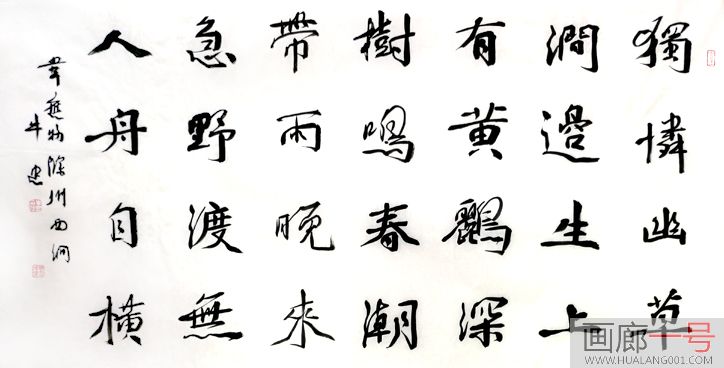 獨憐幽草
澗邊生上
有黄鸝深
樹鳴春潮
帶雨晚來
急野渡無
人舟自橫
韋應物滁州西涧
牛忠
画廊一号
WWW.HUALANG001.COM